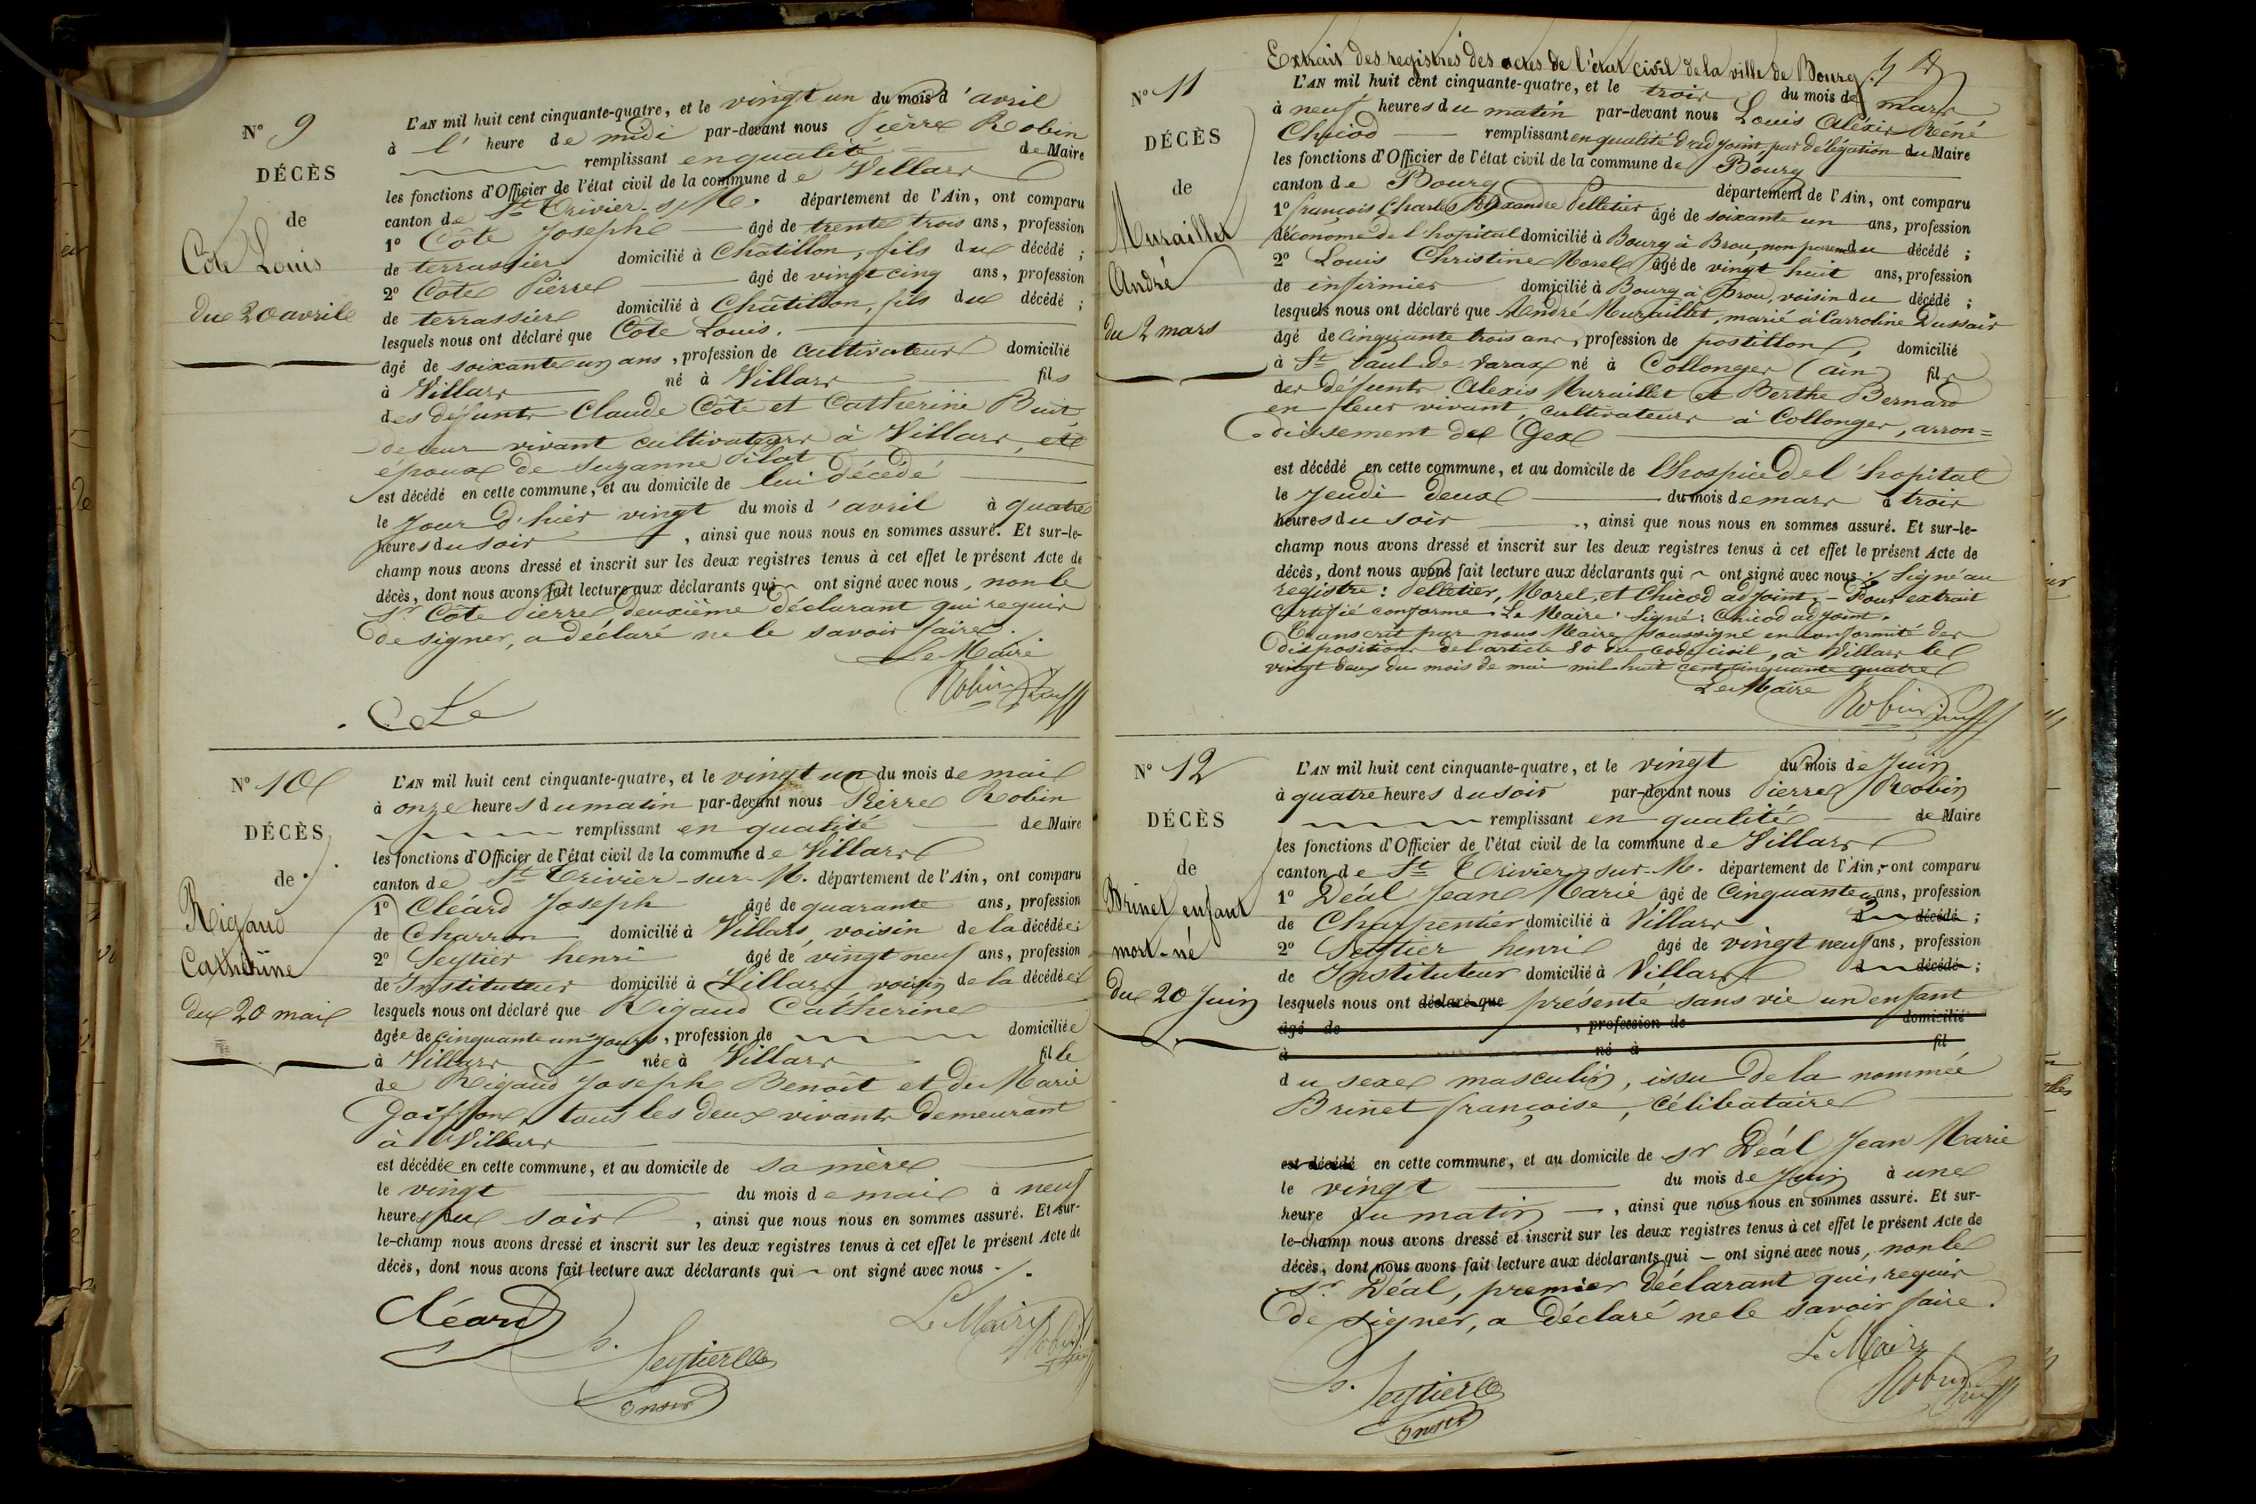 N° 9
DÉCÈS
de
Côte Louis
du 20 avril
L'AN mil huit cent cinquante-quatre, et le vingt un du mois d'avril
à l' heure de midi par-devant nous Pierre Robin
remplissant en qualité de Maire
les fonctions d'Officier de l'état civil de la commune de Villars
canton de St Trivier s/ M. département de l'Ain, ont comparu
1° Côte Joseph âgé de trente trois ans, profession
de terrassier domicilié à Châtillon, fils du décédé ;
2° Côte Pierre âgé de vingt cinq ans, profession
de terrassier domicilié à Châtillon, fils du décédé ;
lesquels nous ont déclaré que Côte Louis.
âgé de soixante un ans, profession de cultivateur domicilié
à Villars né à Villars fils
des défunts Claude Côte et Catherine Buit
de leur vivant cultivateurs à Villars, et
époux de Suzanne Pilat
est décédé en cette commune, et au domicile de lui décédé
le jour d'hier vingt du mois d'avril à quatre
heures du soir, ainsi que nous nous en sommes assuré. Et sur-le-
champ nous avons dressé et inscrit sur les deux registres tenus à cet effet le présent Acte de
décès, dont nous avons fait lecture aux déclarants qui ont signé avec nous, non le
sr Côte Pierre deuxième déclarant qui requis
de signer, a déclaré ne le savoir faire.
Le Maire
Robin
N° 10
DÉCÈS
de
Rigaud
Catherine
du 20 mai
L'AN mil huit cent cinquante-quatre, et le vingt un du mois de mai
à onze heures du matin par-devant nous Pierre Robin
remplissant en qualité de Maire
les fonctions d'Officier de l'état civil de la commune de Villars
canton de St Trivier-sur-M. département de l'Ain, ont comparu
1° Cléard Joseph âgé de quarante ans, profession
de Charron domicilié à Villars, voisin de la décédée ;
2° Seytier henri âgé de vingt neuf ans, profession
de Instituteur domicilié à Villars voisin de la décédée
lesquels nous ont déclaré que Rigaud Catherine
âgée de cinquante un jours, profession de domiciliée
à Villars née à Villars fille
de Rigaud Joseph Benoît et de Marie
Goiffon, tous les deux vivants demeurant
à Villars
est décédée en cette commune, et au domicile de sa mère
le vingt du mois de mai à neuf
heures du soir, ainsi que nous nous en sommes assuré. Et sur-
le-champ nous avons dressé et inscrit sur les deux registres tenus à cet effet le présent Acte de
décès, dont nous avons fait lecture aux déclarants qui ont signé avec nous.
Cléard
Le Maire
Robin
Seytier
N° 11
DÉCÈS
de
Muraillet
André
du 2 mars
Extrait des registres des actes de l'état civil de la ville de Bourg.
L'AN mil huit cent cinquante-quatre, et le trois du mois de mars
à neuf heures du matin par-devant nous Louis Aléxis Réné
Chicod remplissant en qualité d'adjoint par délégation du Maire
les fonctions d'Officier de l'état civil de la commune de Bourg
canton de Bourg département de l'Ain, ont comparu
1° françois Charles Alexandre Pelletier âgé de soixante un ans, profession
d'économe de l'hopital domicilié à Bourg à Brou, non parent du décédé ;
2° Louis Christine Morel âgé de vingt huit ans, profession
de infirmier domicilié à Bourg à Brou, voisin du décédé ;
lesquels nous ont déclaré que André Muraillet, marié à Carroline Dussair
âgé de cinquante trois ans, profession de postillon, domicilié
à St Paul de Varax né à Collonges (ain) fils
des défunts Alexis Muraillet et Berthe Bernard
en leur vivant, cultivateurs à Collonges, arron=
dissement de Gex
est décédé en cette commune, et au domicile de l'hospice de l'hopital
le jeudi deux du mois de mars à trois
heures du soir, ainsi que nous nous en sommes assuré. Et sur-le-
champ nous avons dressé et inscrit sur les deux registres tenus à cet effet le présent Acte de
décès, dont nous avons fait lecture aux déclarants qui ont signé avec nous. Signé au
registre : Pelletier, Morel, et Chicod adjoint. - Pour extrait
certifié conforme. Le Maire. Signé : Chicod adjoint.
Transcrit par nous Maire soussigné en conformité des
dispositions de l'article 80 du code civil, à Villars le
vingt deux du mois de mai mil huit cent cinquante quatre
Le Maire
Robin
N° 12
DÉCÈS
de
Brinet enfant
mort-né
du 20 Juin
L'AN mil huit cent cinquante-quatre, et le vingt du mois de Juin
à quatre heures du soir par-devant nous Pierre Robin
remplissant en qualité de Maire
les fonctions d'Officier de l'état civil de la commune de Villars
canton de St Trivier-sur-M. département de l'Ain, ont comparu
1° Déal Jean Marie âgé de Cinquante un ans, profession
de Charpentier domicilié à Villars d décédé ;
2° Seytier henri âgé de vingt neuf ans, profession
de Instituteur domicilié à Villars d décédé ;
lesquels nous ont déclaré que présenté sans vie un enfant
âgé de , profession de domicilié
à né à fil
du sexe masculin, issu de la nommée
Brinet françoise, célibataire
est décédé en cette commune, et au domicile de sr Déal Jean Marie
le vingt du mois de Juin à une
heure du matin, ainsi que nous nous en sommes assuré. Et sur-
le-champ nous avons dressé et inscrit sur les deux registres tenus à cet effet le présent Acte de
décès, dont nous avons fait lecture aux déclarants qui ont signé avec nous, non le
sr Déal, premier déclarant qui, requis
de signer, a déclaré ne le savoir faire.
Le Maire
Robin
Seytier